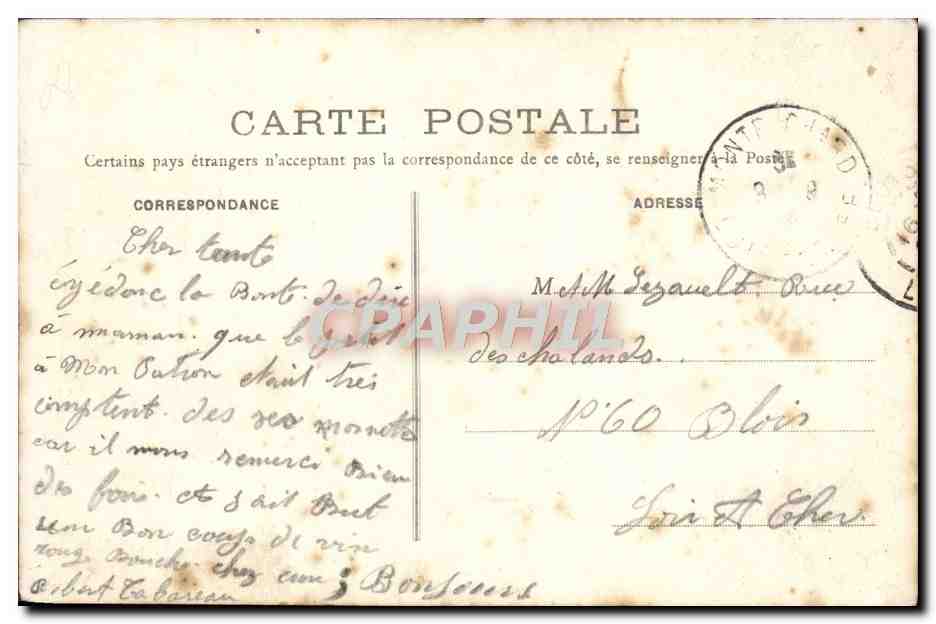 CARTE POSTALE
Certains pays étrangers n'acceptant pas la correspondance de ce côté, se renseigner à la Poste
CORRESPONDANCE
Cher tante
la Bont. de dire
à maman. que le
à Mon Patron etait très
comptent. des
car il nous remerci Bien
des fois. et j ait But
un Bon coups de vin
rouge Bouche. chez eux ; Bonjours
Tabareau
ADRESSE
M AM Lezault. Rue
des chalands.
N° 60 Blois
Loir Et Cher.
CPARPHIL